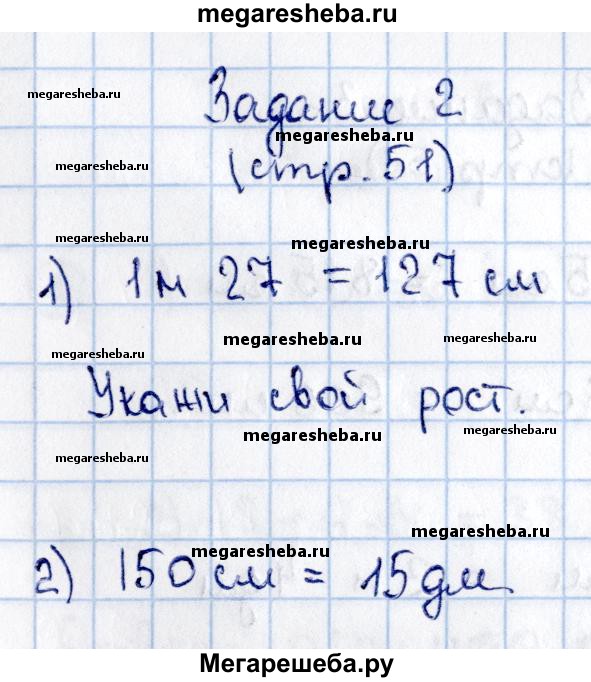 megaresheba.ru
megaresheba.ru
Задание 2
megaresheba.ru
megaresheba.ru
(стр. 51)
megaresheba.ru
megaresheba.ru
1) 1м 27 = 127 см
megaresheba.ru
megaresheba.ru
megaresheba.ru
Укажи свой рост.
megaresheba.ru
megaresheba.ru
megaresheba.ru
megaresheba.ru
megaresheba.ru
2) 150 см = 15 дм
Мегарешеба.ру